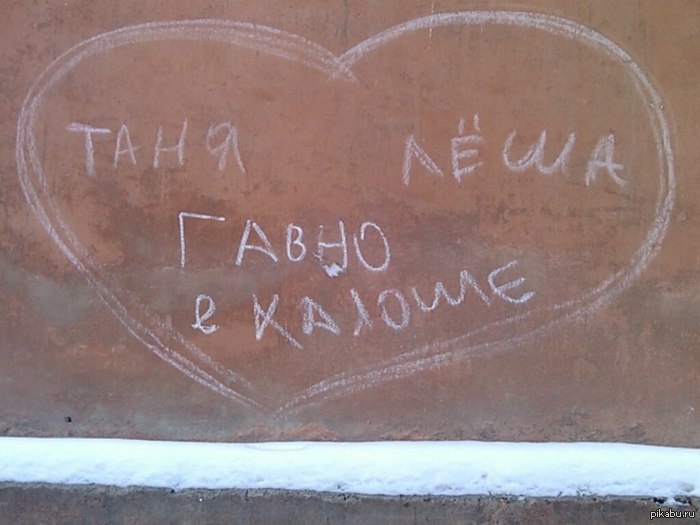 ТАНЯ ЛЁША
ГАВНО
в КАЛОШЕ
pikabu.ru